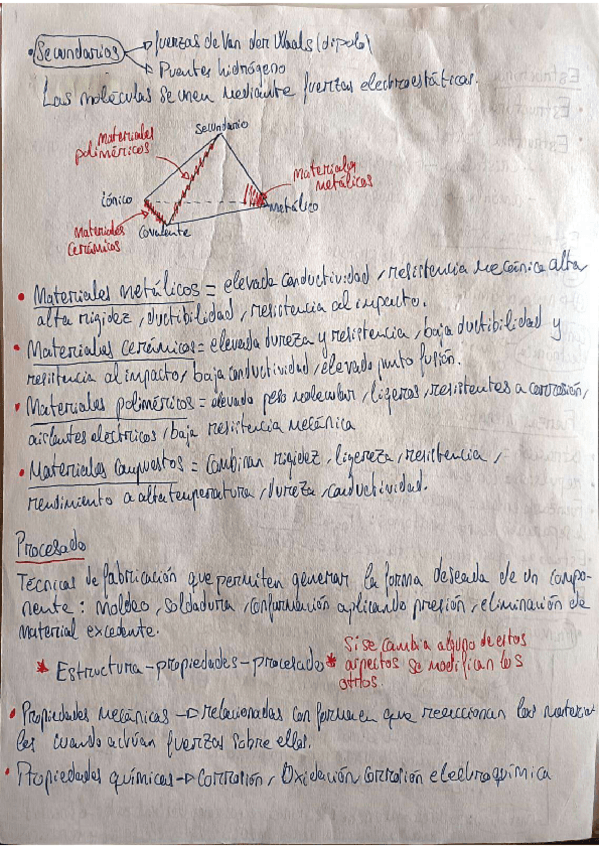 • Secundarios → fuerzas de Van der Waals (dipolo)
→ Puentes hidrógeno
Las moléculas se unen mediante fuerzas electroestáticas.
Secundario
Materiales
poliméricos
Materiales
metálicos
iónico
Metálico
Materiales
cerámicos
Covalente
• Materiales metálicos = elevada conductividad, resistencia mecánica alta
alta rigidez, ductibilidad, resistencia al impacto.
• Materiales cerámicos = elevada dureza y resistencia, baja ductibilidad y
resistencia al impacto, baja conductividad, elevado punto fusión.
• Materiales poliméricos = elevado peso molecular, ligeros, resistentes a corrosión,
aislantes electricos, baja resistencia mecánica
• Materiales compuestos = combinan rigidez, ligereza, resistencia,
rendimiento a alta temperatura, dureza, conductividad.
Procesado
Técnicas de fabricación que permiten generar la forma deseada de un compo-
nente: moldeo, soldadura, conformación aplicando presión, eliminación de
material excedente.
* Estructura - propiedades - procesado *
Si se cambia alguno de estos
aspectos se modifican los
otros.
• Propiedades mecánicas → relacionadas con forma en que reaccionan los materia-
les cuando actúan fuerzas sobre ellos.
• Propiedades químicas → corrosión, Oxidación corrosión electroquímica